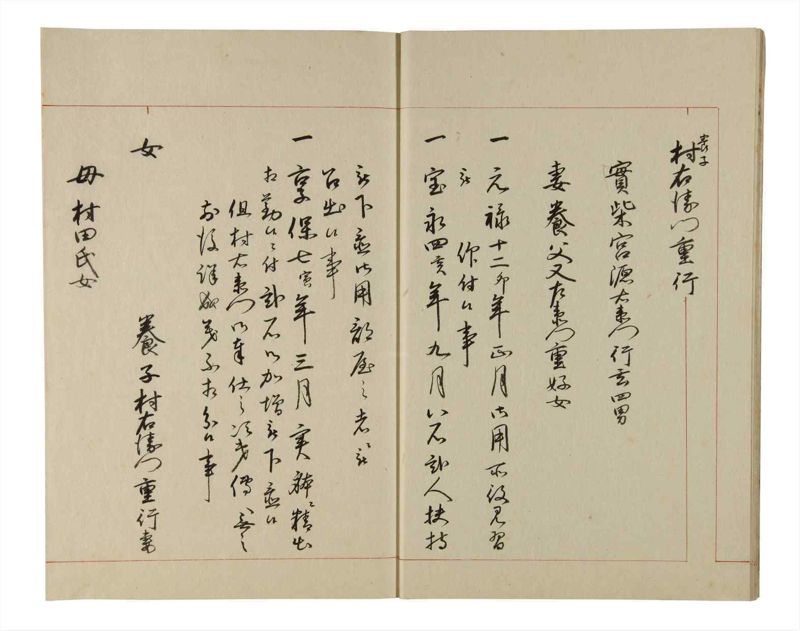 養子
村右衛門重行
實柴宮源右衛門行玄四男
妻養父又左衛門重好女
一元禄十二卯年正月御用所役見習
被 仰付候事
一宝永四亥年九月八石弐人扶持
被下置御用部屋之者ニ被
召出候事
一享保七寅年三月実躰ニ精出
相勤候ニ付弐石御加増被下置候
但村右衛門御奉仕之次第傳無之
詳敷義不相分候事
女
養子村右衛門重行妻
母村田氏女